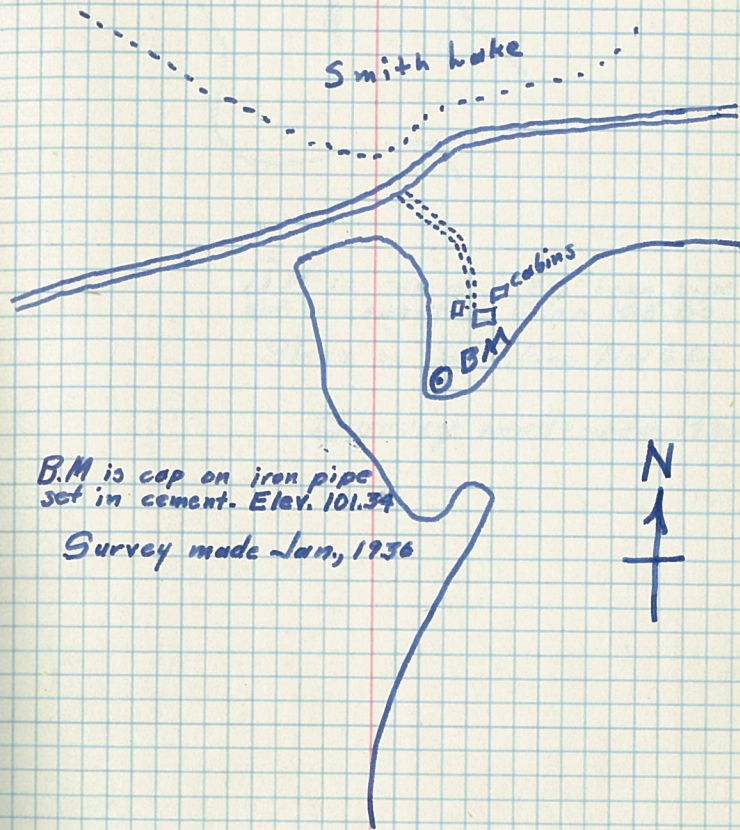 Smith Lake
cabins
BM
N
B.M is cap on iron pipe
set in cement. Elev. 101.34
Survey made Jan., 1936